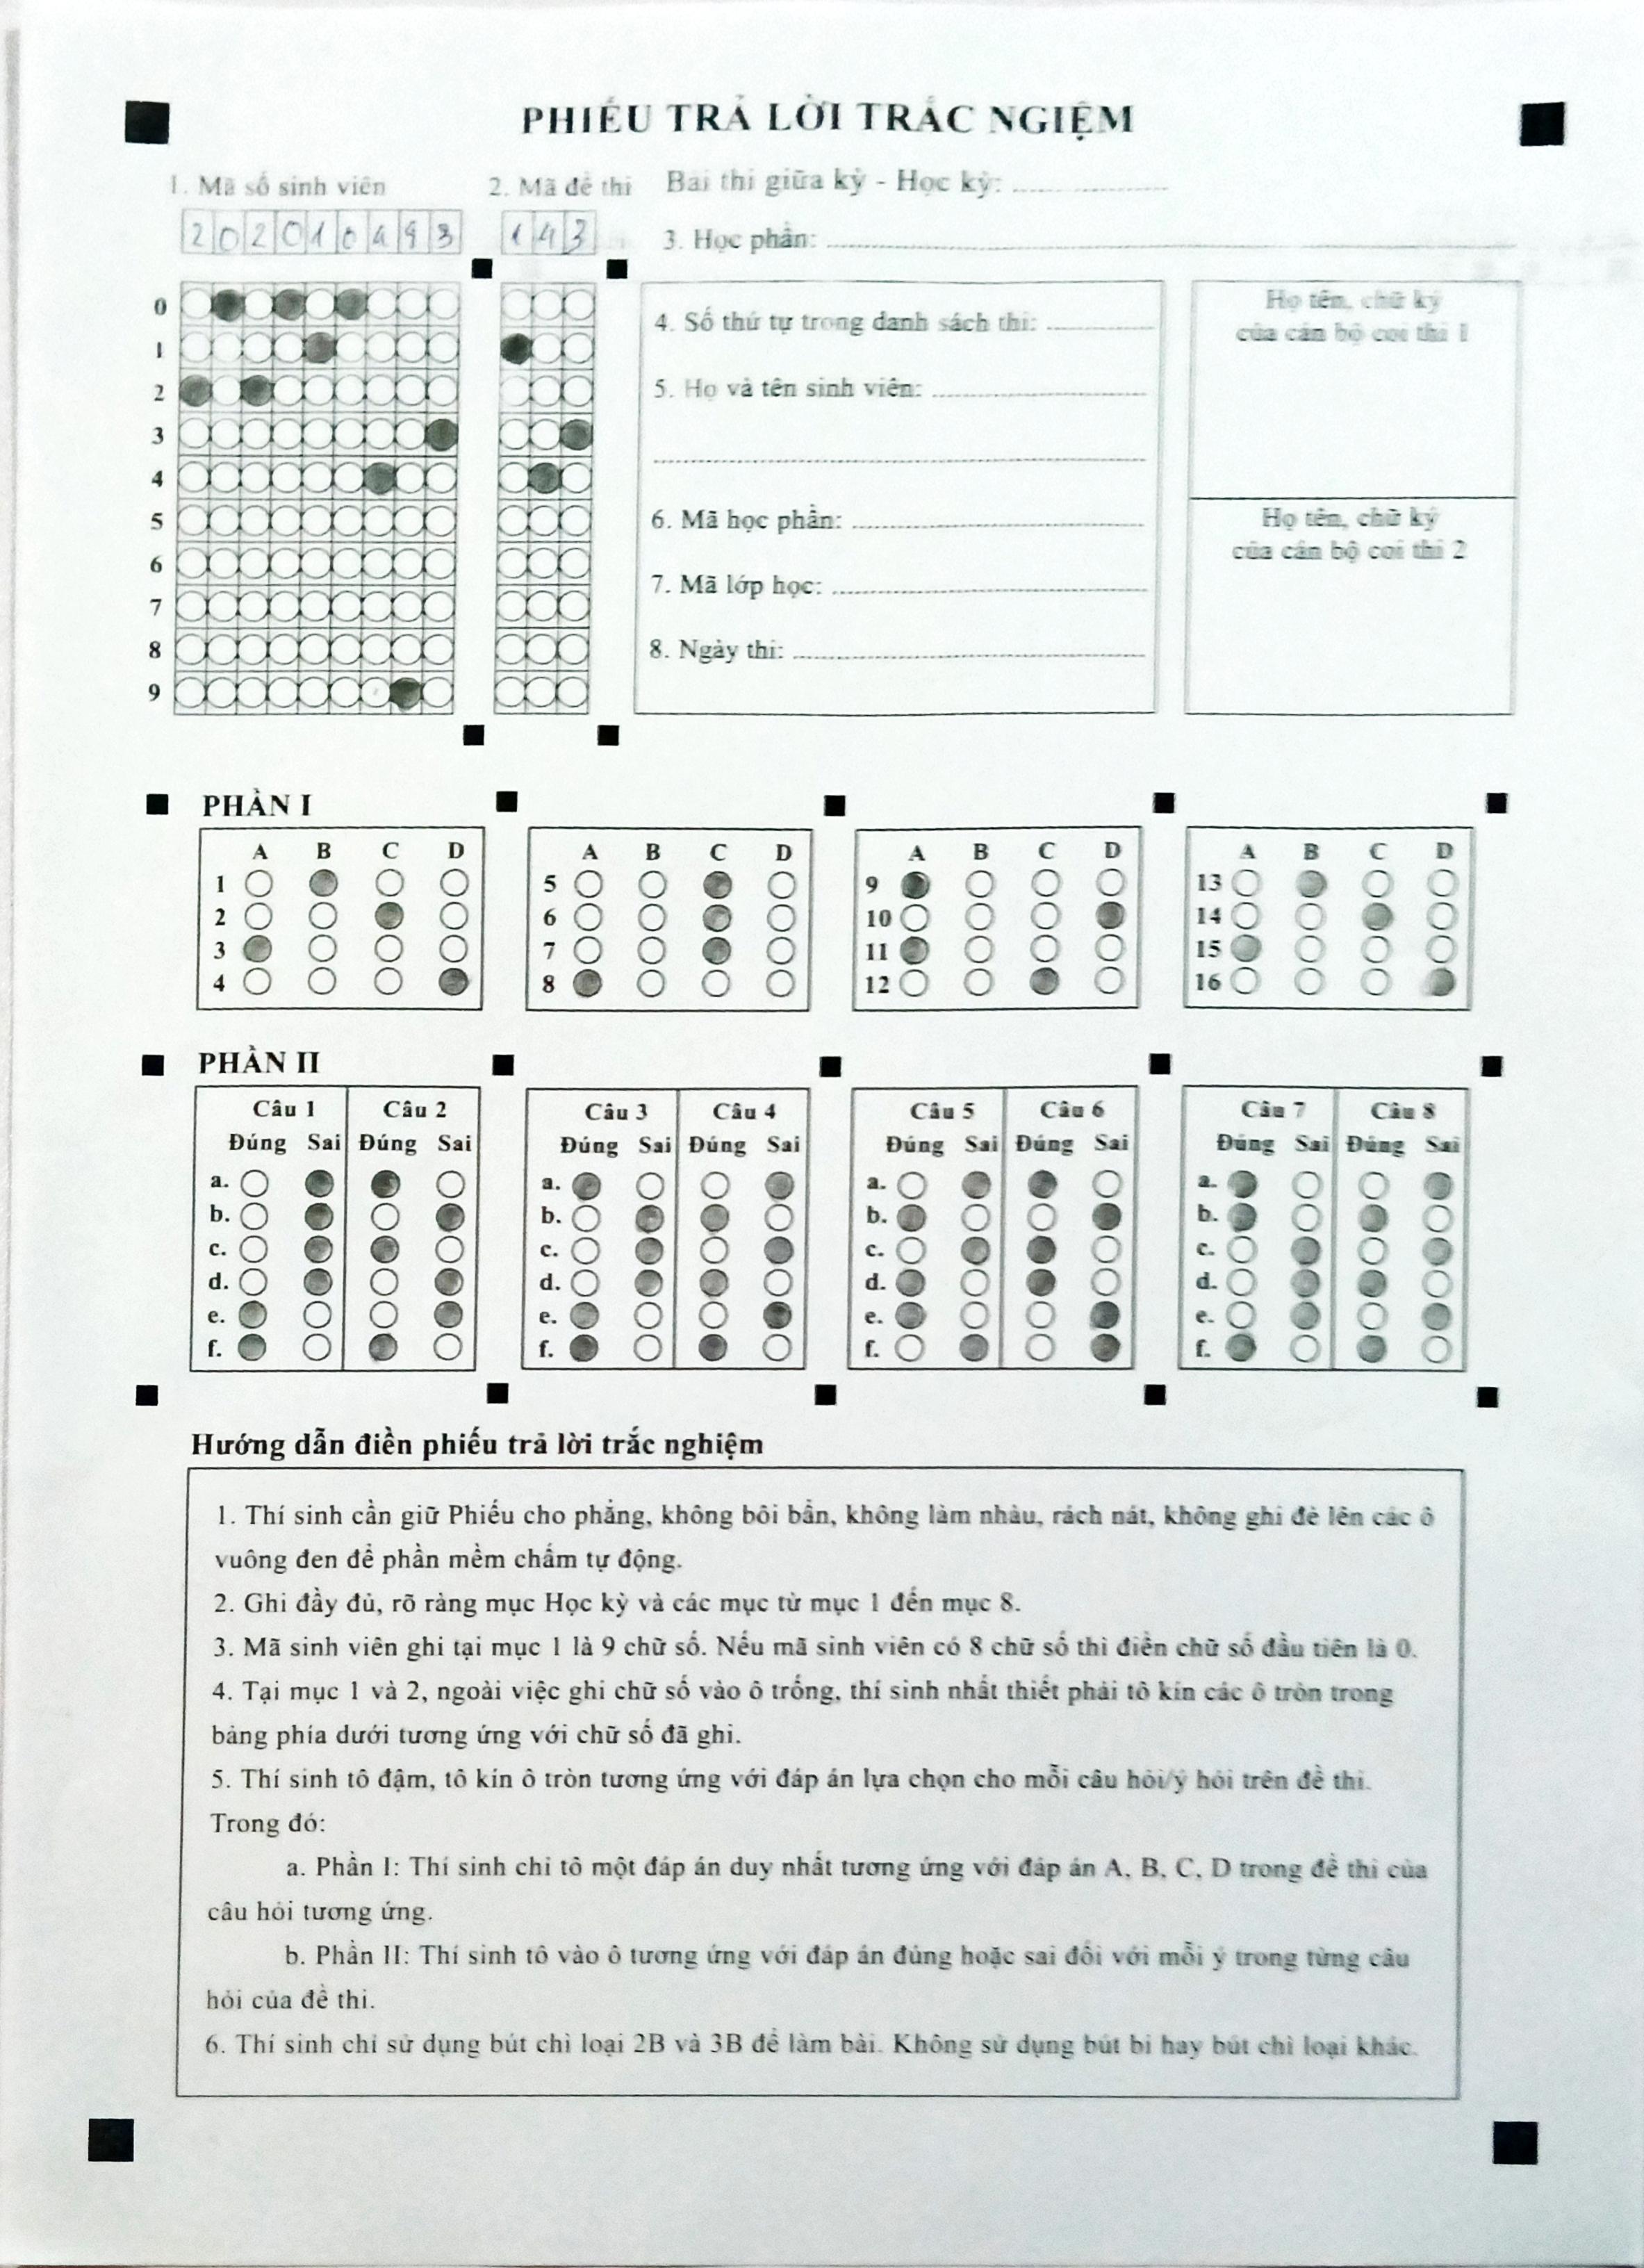 PHIẾU TRẢ LỜI TRẮC NGIỆM
1. Mã số sinh viên
2. Mã đề thi
Bài thi giữa kỳ - Học kỳ:
202010493
143
3. Học phần:
0
1
2
3
4
5
6
7
8
9
4. Số thứ tự trong danh sách thi:
5. Họ và tên sinh viên:
6. Mã học phần:
7. Mã lớp học:
8. Ngày thi:
Họ tên, chữ ký
của cán bộ coi thi 1
Họ tên, chữ ký
của cán bộ coi thi 2
PHẦN I
A B C D
1
2
3
4
A B C D
5
6
7
8
A B C D
9
10
11
12
A B C D
13
14
15
16
PHẦN II
Câu 1 Câu 2
Đúng Sai Đúng Sai
a.
b.
c.
d.
e.
f.
Câu 3 Câu 4
Đúng Sai Đúng Sai
a.
b.
c.
d.
e.
f.
Câu 5 Câu 6
Đúng Sai Đúng Sai
a.
b.
c.
d.
e.
f.
Câu 7 Câu 8
Đúng Sai Đúng Sai
a.
b.
c.
d.
e.
f.
Hướng dẫn điền phiếu trả lời trắc nghiệm
1. Thí sinh cần giữ Phiếu cho phẳng, không bôi bẩn, không làm nhàu, rách nát, không ghi đè lên các ô
vuông đen để phần mềm chấm tự động.
2. Ghi đầy đủ, rõ ràng mục Học kỳ và các mục từ mục 1 đến mục 8.
3. Mã sinh viên ghi tại mục 1 là 9 chữ số. Nếu mã sinh viên có 8 chữ số thì điền chữ số đầu tiên là 0.
4. Tại mục 1 và 2, ngoài việc ghi chữ số vào ô trống, thí sinh nhất thiết phải tô kín các ô tròn trong
bảng phía dưới tương ứng với chữ số đã ghi.
5. Thí sinh tô đậm, tô kín ô tròn tương ứng với đáp án lựa chọn cho mỗi câu hỏi/ý hỏi trên đề thi.
Trong đó:
a. Phần I: Thí sinh chỉ tô một đáp án duy nhất tương ứng với đáp án A, B, C, D trong đề thi của
câu hỏi tương ứng.
b. Phần II: Thí sinh tô vào ô tương ứng với đáp án đúng hoặc sai đối với mỗi ý trong từng câu
hỏi của đề thi.
6. Thí sinh chỉ sử dụng bút chì loại 2B và 3B để làm bài. Không sử dụng bút bi hay bút chì loại khác.